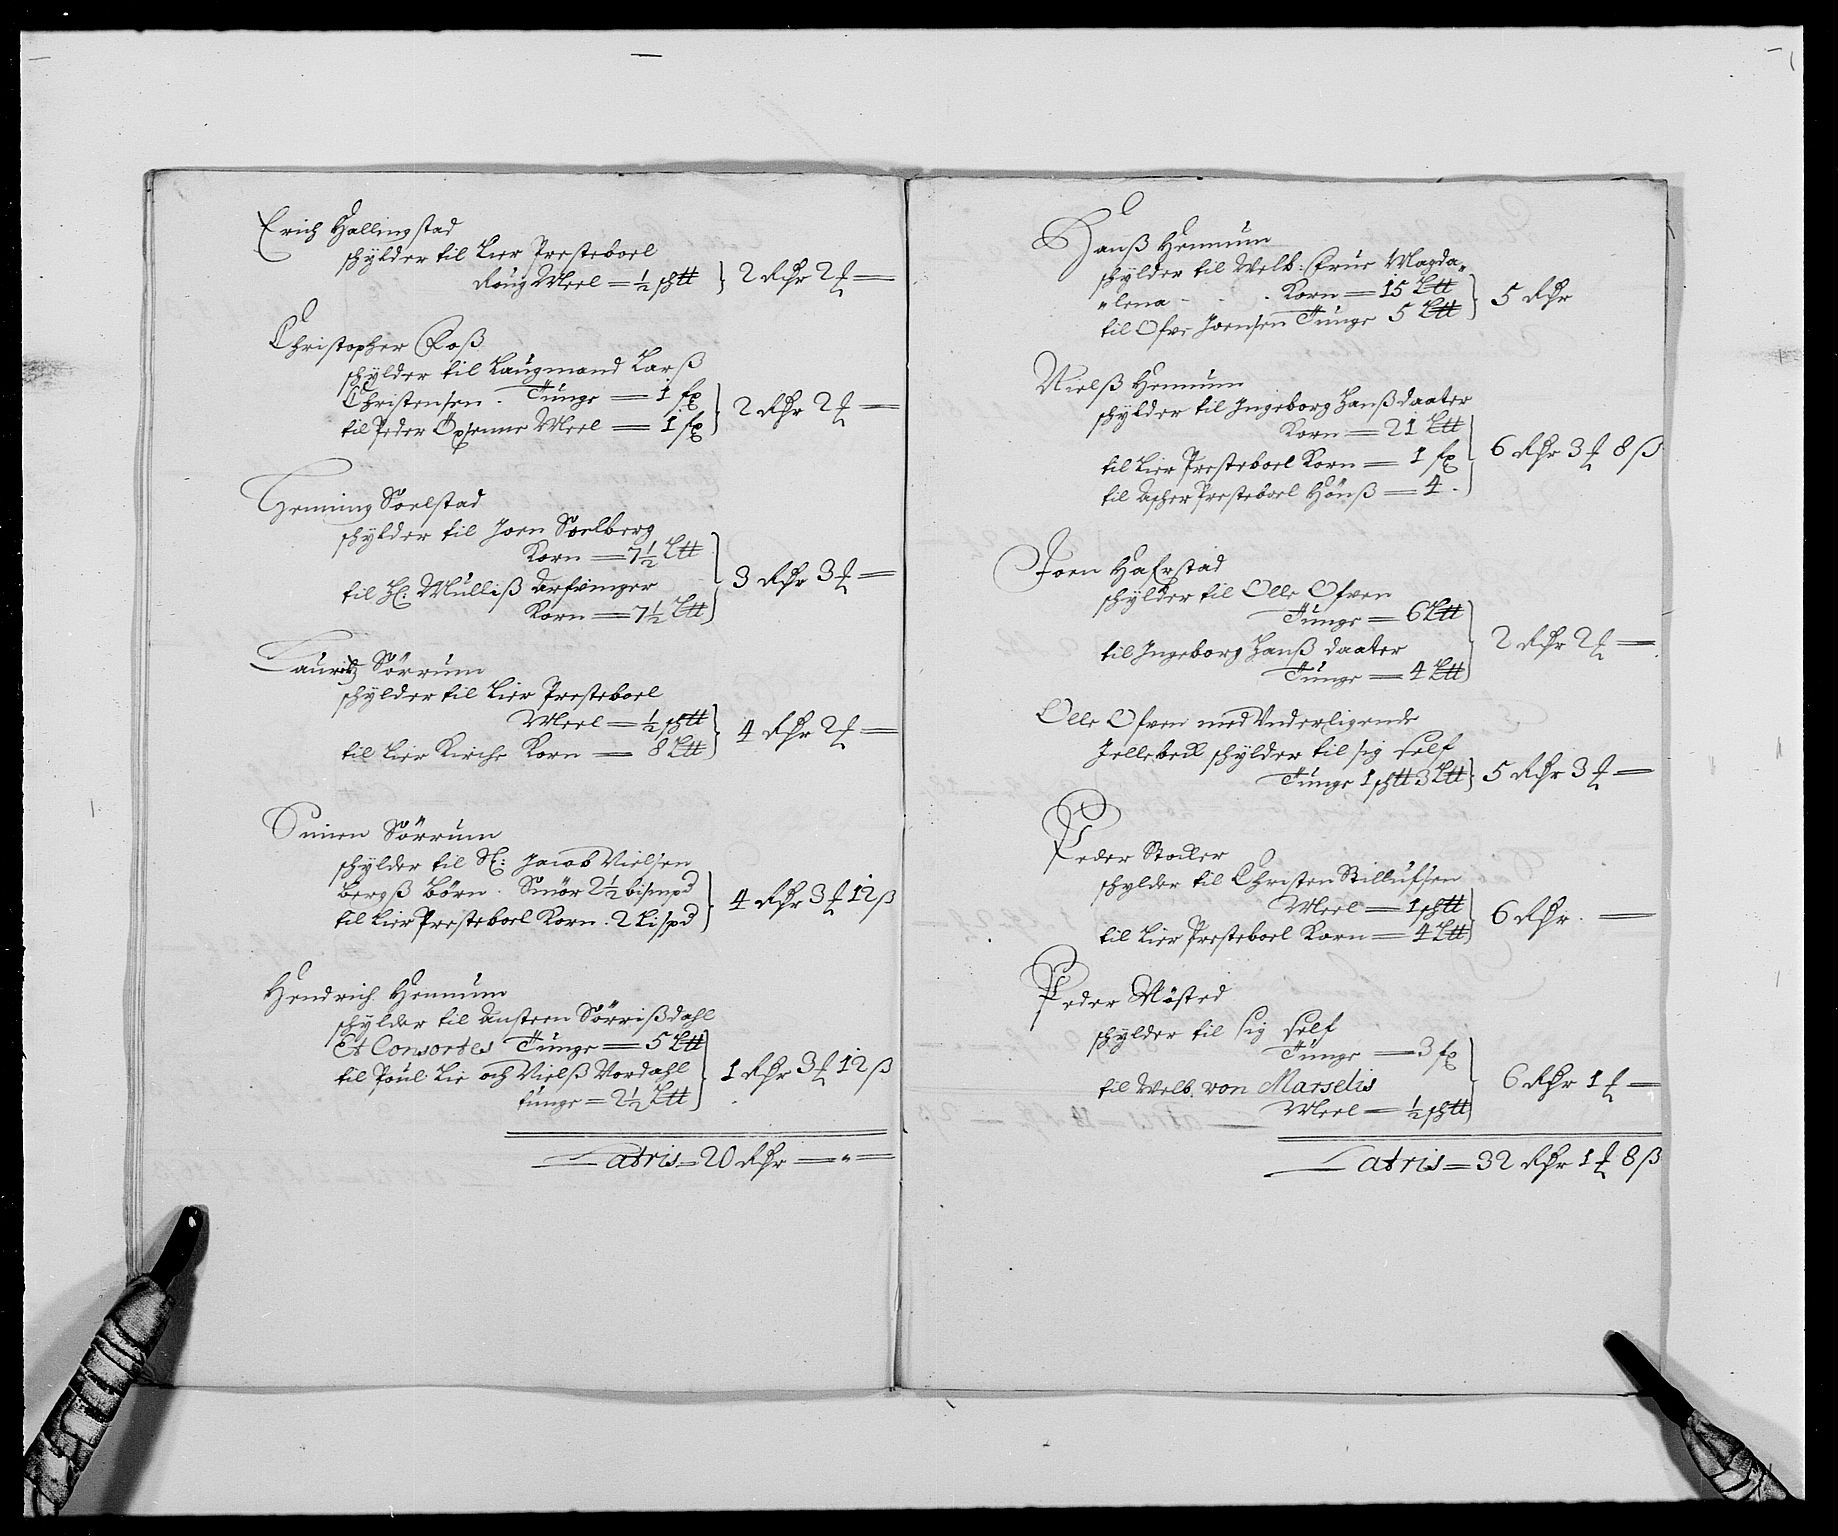 Erich Hallingstad
schylder til Lier Presteboel
Roug Meel = ½ sh℔ } 2 Rdr 2 ƒ =
Christopher Roß
schylder til Laugmand Larß
Christensen . Tunge = 1 fx
til Peder Öxsenne Meel = 1 fx } 2 Rdr 2 ƒ =
Henning Soelstad
schylder til Joen Soelberg
Korn = 7½ L℔
til Hl: Mulliß Arfvinger
Korn = 7½ L℔ } 3 Rdr 3 ƒ =
Lauritz Sörrum
schylder til Lier Presteboel
Meel = ½ sh℔
til Lier Kirche Korn = 8 L℔ } 4 Rdr 2 ƒ =
Simen Sörrum
schylder til Sl: Jacob Nielsen
Bergß Börn . Smör 2½ bismpd
til Lier Presteboel Korn . 2 Lispd } 4 Rdr 3 ƒ 12 ß
Hendrich Hennum
schylder til Ansteen Sörrißdahl
Et Consortes Tunge = 5 L℔
til Poul Lie och Nielß Vordahl
tunge = 2½ L℔ } 1 Rdr 3 ƒ 12 ß
Latris = 20 Rdr = " =
Hanß Hennum
schylder til Welb: Frue Magda„
„lena - . Korn = 15 L℔
til Ofve Joensen Tunge 5 L℔ } 5 Rdr
Nielß Hennum
schylder til Ingeborg Hanßdaater
Korn = 21 L℔
til Lier Presteboel Korn = 1 fx
til Ascher Presteboel Hönß = 4 . } 6 Rdr 3 ƒ 8 ß
Joen Hafrstad
schylder til Olle Ofven
Tunge = 6 L℔
til Ingeborg Hanß daater
Tunge = 4 L℔ } 2 Rdr 2 ƒ =
Olle Ofven med Vnderligende
Jellebeck schylder til sig self
Tunge 1 sh℔ 3 L℔ } 5 Rdr 3 ƒ =
Peder Stocker
schylder til Christen Stillufsen
Meel = 1 sh℔
til Lier Presteboel Korn = 4 L℔ } 6 Rdr . =
Peder Nösted
schylder til sig self
Tunge = 3 fx
til Welb. von Marselis
Meel = ½ sh℔ } 6 Rdr 1 ƒ =
Latris = 32 Rdr 1 ƒ 8 ß